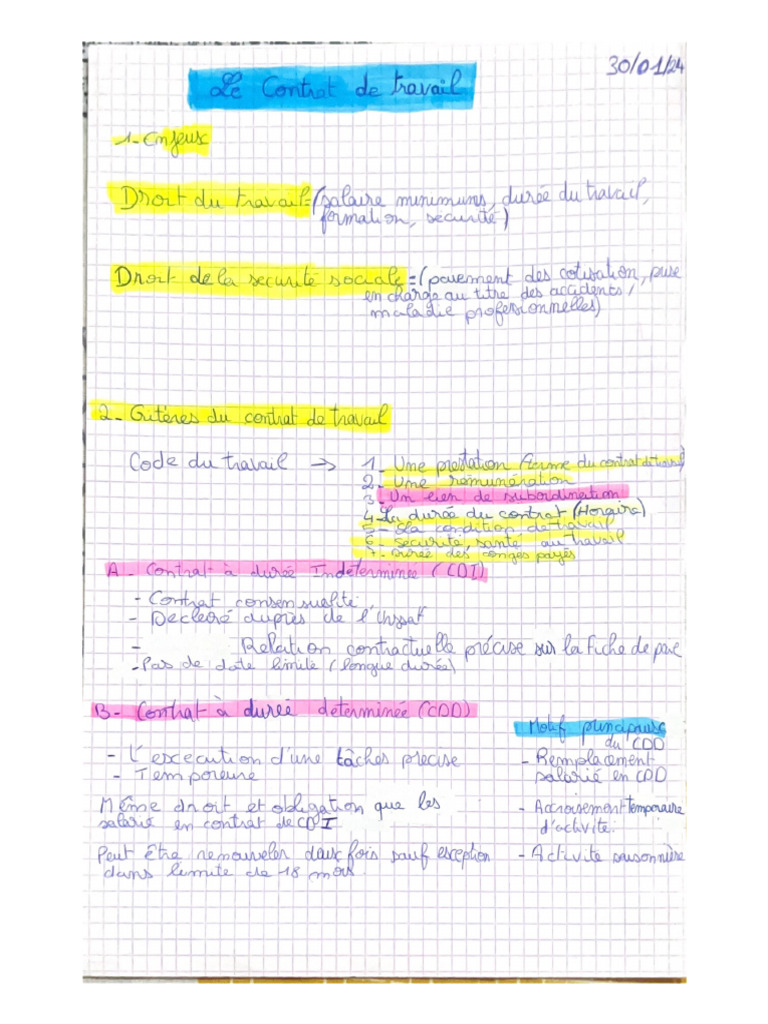 30/01/24
Le Contrat de travail
1- Enjeux
Droit du travail = (salaire minimums, durée du travail,
formation, securité)
Droit de la securité sociale = (paiement des cotisation, prise
en charge au titre des accidents /
maladie professionnelles)
2- Critères du contrat de travail
Code du travail → 1- Une prestation (terme du contrat de travail)
2- Une rémunération
3- Un lien de subordination
4- La durée du contrat (Horaire)
5- La condition de travail
6- securité, santé au travail
7- Durée des conges payés
A- Contrat à durée Indéterminée (CDI)
- Contrat consensuelte
- Declaré auprès de l'Urssaf
- Relation contractuelle précise sur la fiche de paie
- Pas de date limite (longue durée)
B- Contrat à durée determinée (CDD)
- L'execution d'une tâches precise
- Temporeure
Même droit et obligation que les
salarié en contrat de CDI
Peut être renouveler deux fois sauf exception
dans limite de 18 mois
Motif principaux
du CDD
- Remplacement
salarié en CDD
- Accroisement temporaire
d'activité.
- Activite saisonnière